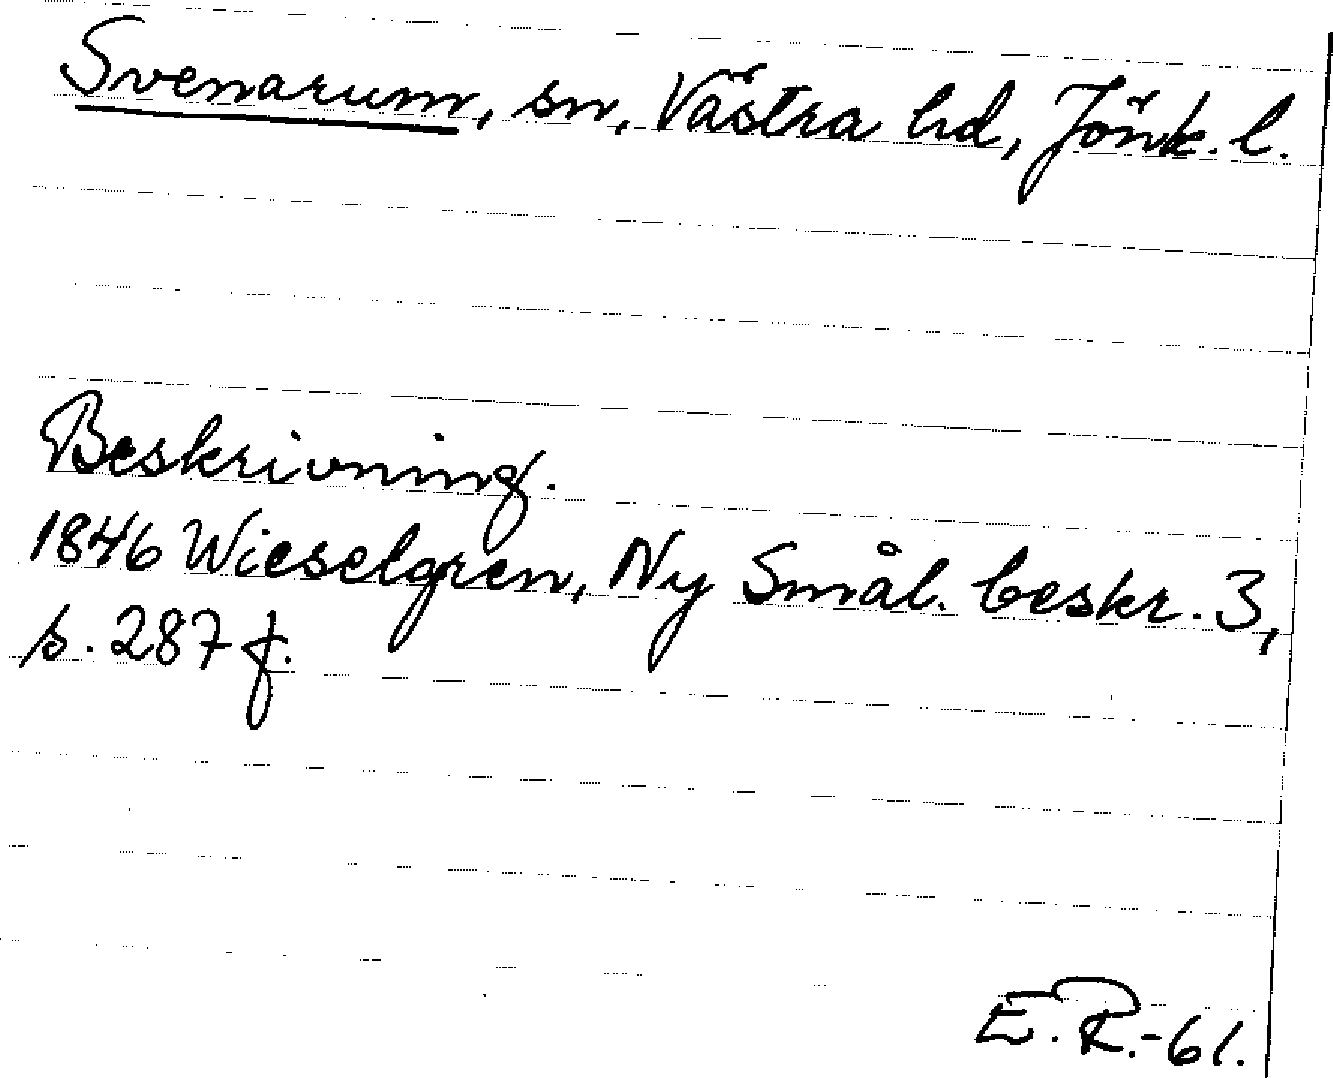 Svenarum, sn, Västra hd, Jönk. l.
Beskrivning.
1846 Wieselgren, Ny Smål. beskr. 3,
s. 287 f.
E.R.-61.